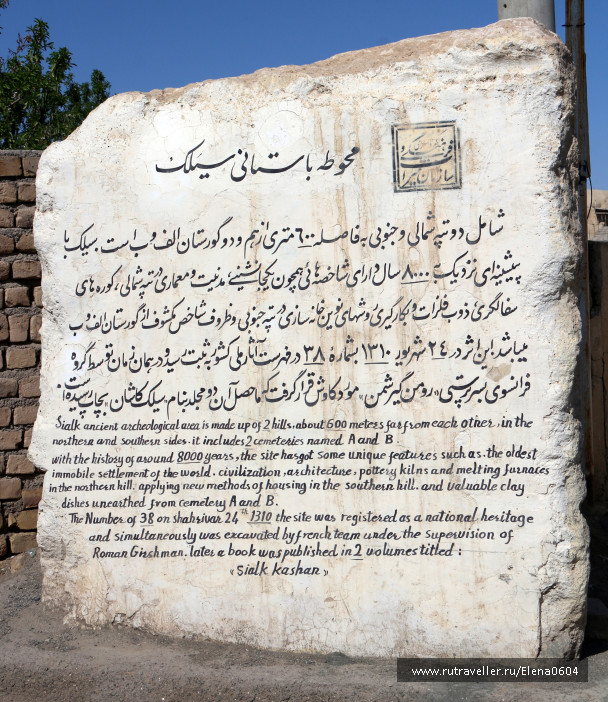 محوطه باستانی سیلک
سازمان
شامل دو تپه شمالی و جنوبی به فاصله ۶۰۰ متری از هم و دو گورستان الف و ب است. سیلک با
پیشینه‌ای نزدیک به ۸۰۰۰ سال و دارای شاخصه هایی همچون یکجانشینی، مدنیت و معماری در تپه شمالی، کوره های
سفالگری، ذوب فلزات و بکارگیری روشهای نوین خانه سازی در تپه جنوبی و ظروف شاخص مکشوف از گورستان الف و ب
میباشد این اثر در ۲۴ شهریور ۱۳۱۰ بشماره ۳۸ در فهرست آثار ملی کشور به ثبت رسید و در همان زمان توسط گروه
فرانسوی بسرپرستی «رومن گیرشمن» مورد کاوش قرار گرفت که ماحصل آن دو مجلد بنام «سیلک کاشان» بچاپ رسیده است
Sialk ancient archeological area is made up of 2 hills, about 600 meters far from each other, in the
northern and southern sides. it includes 2 cemeteries named A and B.
with the history of around 8000 years, the site has got some unique features such as. the oldest
immobile settlement of the world. civilization, architecture, pottery kilns and melting furnaces
in the northern hill. applying new methods of housing in the southern hill. and valuable clay
dishes unearthed from cemetery A and B.
The Number of 38 on shahrivar 24th 1310 the site was registered as a national heritage
and simultaneously was excavated by french team under the supervision of
Roman Girshman. later a book was published in 2 volumes titled :
«Sialk kashan»
www.rutraveller.ru/Elena0604